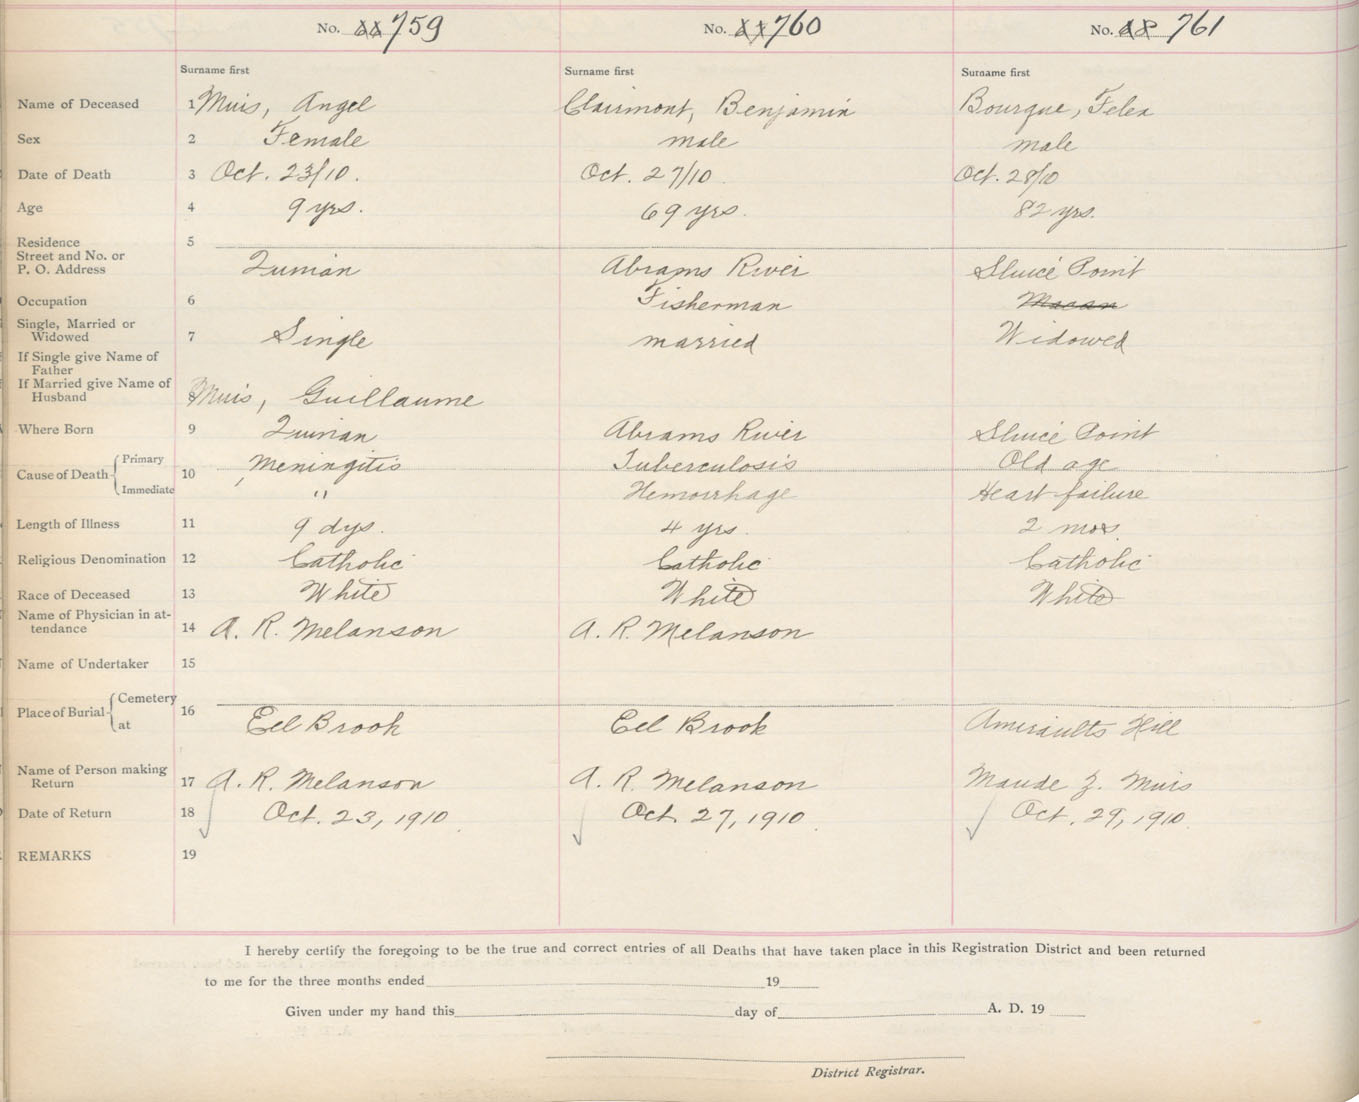 No. 759 No. 760 No. 761
Surname first Surname first Surname first
Name of Deceased 1 Muis, Angel Clairmont, Benjamin Bourque, Felex
Sex 2 Female male male
Date of Death 3 Oct. 23/10. Oct. 27/10 Oct. 28/10
Age 4 9 yrs. 69 yrs. 82 yrs.
Residence 5
Street and No. or
P. O. Address Quinan Abrams River Sluice Point
Occupation 6 Fisherman Mason
Single, Married or
Widowed 7 Single married Widowed
If Single give Name of
Father
If Married give Name of
Husband Muis, Guillaume
Where Born 9 Quinan Abrams River Sluice Point
Cause of Death Primary 10 Meningitis Tuberculosis Old age
Immediate " Hemorrhage Heart failure
Length of Illness 11 9 dys. 4 yrs. 2 mos.
Religious Denomination 12 Catholic Catholic Catholic
Race of Deceased 13 White White White
Name of Physician in at-
tendance 14 A. R. Melanson A. R. Melanson
Name of Undertaker 15
Place of Burial Cemetery 16
at Eel Brook Eel Brook Amiraults Hill
Name of Person making
Return 17 A. R. Melanson A. R. Melanson Maude Z. Muis
Date of Return 18 Oct. 23, 1910. Oct. 27, 1910. Oct. 29, 1910.
REMARKS 19
I hereby certify the foregoing to be the true and correct entries of all Deaths that have taken place in this Registration District and been returned
to me for the three months ended 19
Given under my hand this day of A. D. 19
District Registrar.